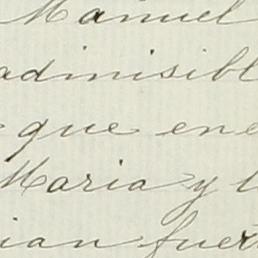 Manuel
adinisibl
que ene
Maria y l
ian fuer